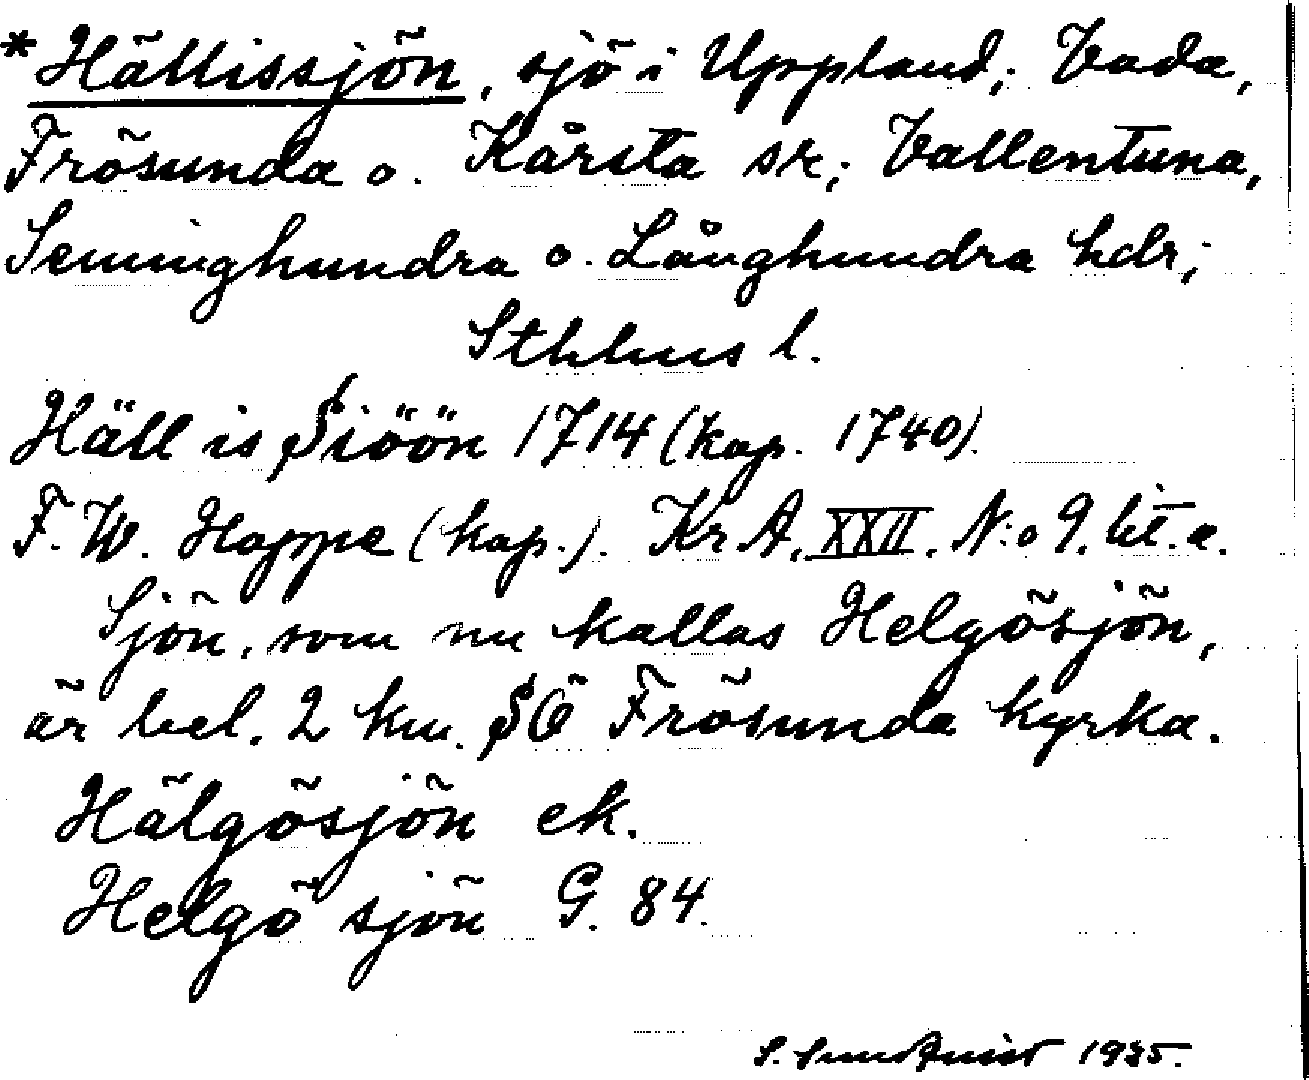 *Hällissjön, sjö i Uppland; Vada,
Frösunda o. Kårsta sr; Vallentuna,
Seminghundra o. Långhundra hdr;
Sthlms l.
Häll is Siöön 1714 (kop. 1740).
F. W. Hoppe (kop.). Kr A, XXII. N:o 9. lit. a.
Sjön, som nu kallas Helgösjön,
är bel. 2 km. SÖ Frösunda kyrka.
Hälgösjön ek.
Helgö sjön G. 84.
S. Sundquist 1935.